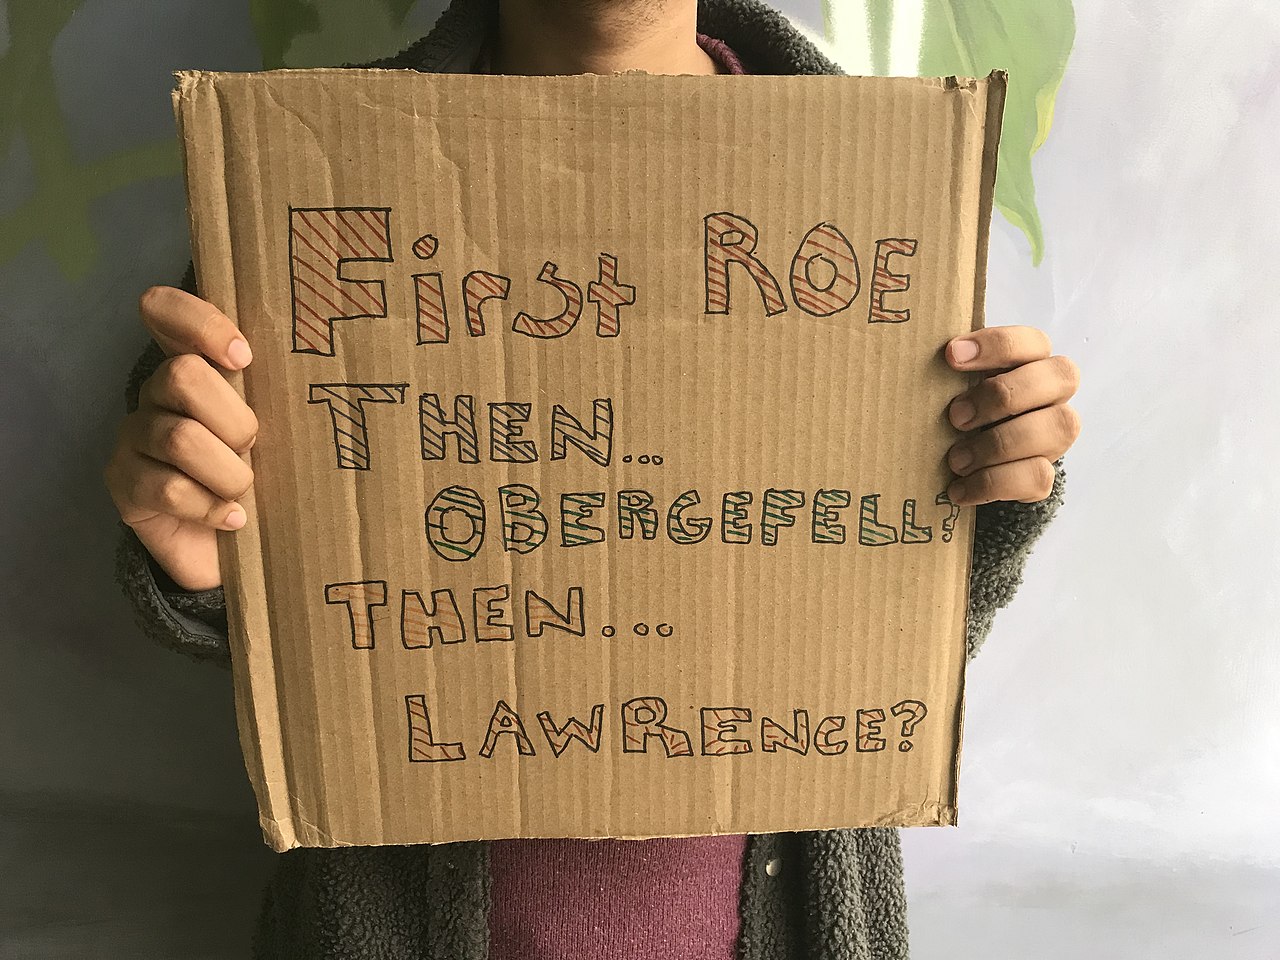 First ROE
THEN...
OBERGEFELL?
THEN...
LAWRENCE?